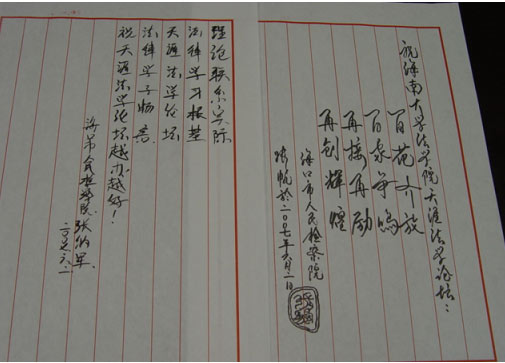 祝海南大学法学院天涯法学论坛：
百花齐放
百家争鸣
再接再励
再创辉煌
海口市人民检察院
帆於二〇〇七年六月一日
理论联系实际
法律学习根基
天涯法学论坛
法律学子畅言
祝天涯法学论坛越办越好！
检察院 张